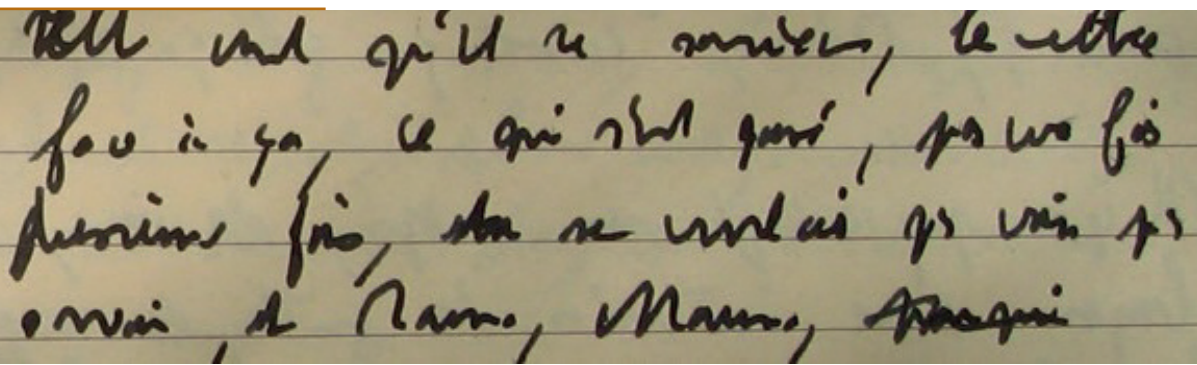 veut qu'il se souvienne, le mettre
face à ça, ce qui s'est passé, pas une fois
plusieurs fois, elle ne voulait pas voir pas
savoir, et Maman, Maman,